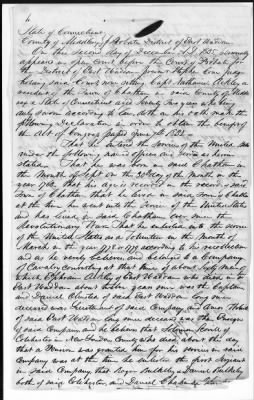 State of Connecticut,
County of Middlesex, Probate District of East Haddam
On this Second day of December A.D. 1835 personally
appeared in open Court before the Court of Probate for
the District of East Haddam
said Court now sitting Capt. Nathaniel Ackley a
resident of the Town of Chatham in said County of Middle
sex & State of Connecticut aged Seventy Two years who being
duly sworn according to Law, doth on his oath make the
following declaration in order to obtain the benefit of
the Act of Congress passed June 7th 1832 –
That he entered the service of the United States
under the following officers and served as herein
stated. That he was born in said Chatham in
the Month of Sept on the day of the Month in the
year 1763 that his age is recorded in the records in said
Town of Chatham that he lived in said Town of Chatham
at the time he went into the Service of the United States
and has lived in said Chatham ever since the
Revolutionary War. That he entered into the service
of the United States as a Volunteer in the Month of
March in the year 1778 or 1779 according to his recollection
and as he verily believes, and belonged to a Company
of Cavalry consisting at that time of about Sixty men of
which Ephraim Ackley of East Haddam who died in
East Haddam about years ago was the Captain
and Daniel Olmsted of said East Haddam long since
deceased was Lieutenant of said Company, and
of said East Haddam long since deceased was the
of said Company, and he believes that Solomon Scovill of
Colchester in New London County who died, about the day
that a Pension was granted him for his services in said
Company was at the time he enlisted the first Sergeant
in said Company, that Roger Bulkley and Daniel Bulkley
both of said Colchester, and Daniel Chapman